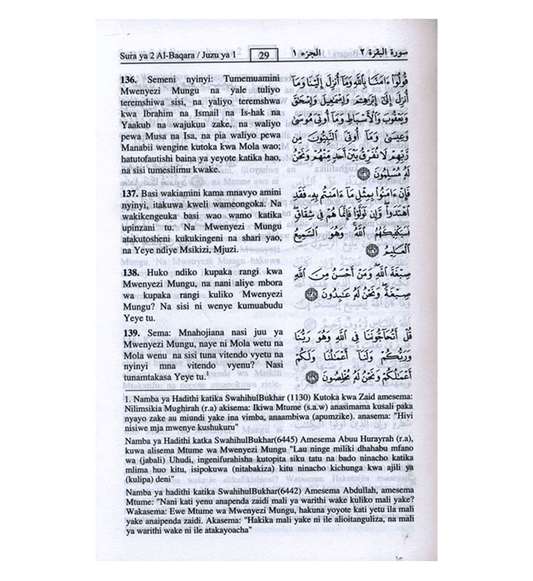 Sura ya 2 Al-Baqara / Juzu ya 1
29
الجزء ١
سورة البقرة ٢
136. Semeni nyinyi: Tumemuamini
Mwenyezi Mungu na yale tuliyo
teremshiwa sisi, na yaliyo teremshwa
kwa Ibrahim na Ismail na Is-hak na
Yaakub na wajukuu zake, na waliyo
pewa Musa na Isa, na pia waliyo pewa
Manabii wengine kutoka kwa Mola wao;
hatutofautishi baina ya yeyote katika hao,
na sisi tumesilimu kwake.
قُولُوٓا۟ ءَامَنَّا بِٱللَّهِ وَمَآ أُنزِلَ إِلَيْنَا وَمَآ
أُنزِلَ إِلَىٰٓ إِبْرَٰهِـۧمَ وَإِسْمَـٰعِيلَ وَإِسْحَـٰقَ
وَيَعْقُوبَ وَٱلْأَسْبَاطِ وَمَآ أُوتِىَ مُوسَىٰ
وَعِيسَىٰ وَمَآ أُوتِىَ ٱلنَّبِيُّونَ مِن
رَّبِّهِمْ لَا نُفَرِّقُ بَيْنَ أَحَدٍ مِّنْهُمْ وَنَحْنُ
لَهُۥ مُسْلِمُونَ ١٣٦
137. Basi wakiamini kama mnavyo amini
nyinyi, itakuwa kweli wameongoka. Na
wakikengeuka basi wao wamo katika
upinzani tu. Na Mwenyezi Mungu
atakutosheni kukukingeni na shari yao,
na Yeye ndiye Msikizi, Mjuzi.
فَإِنْ ءَامَنُوا۟ بِمِثْلِ مَآ ءَامَنتُم بِهِۦ فَقَدِ
ٱهْتَدَوا۟ وَّإِن تَوَلَّوْا۟ فَإِنَّمَا هُمْ فِى شِقَاقٍ
فَسَيَكْفِيكَهُمُ ٱللَّهُ وَهُوَ ٱلسَّمِيعُ
ٱلْعَلِيمُ ١٣٧
138. Huko ndiko kupaka rangi kwa
Mwenyezi Mungu, na nani aliye mbora
wa kupaka rangi kuliko Mwenyezi
Mungu? Na sisi ni wenye kumuabudu
Yeye tu.
صِبْغَةَ ٱللَّهِ وَمَنْ أَحْسَنُ مِنَ ٱللَّهِ
صِبْغَةً وَنَحْنُ لَهُۥ عَـٰبِدُونَ ١٣٨
139. Sema: Mnahojiana nasi juu ya
Mwenyezi Mungu, naye ni Mola wetu na
Mola wenu na sisi tuna vitendo vyetu na
nyinyi mna vitendo vyenu? Nasi
tunamtakasa Yeye tu.¹
قُلْ أَتُحَآجُّونَنَا فِى ٱللَّهِ وَهُوَ رَبُّنَا
وَرَبُّكُمْ وَلَنَآ أَعْمَـٰلُنَا وَلَكُمْ
أَعْمَـٰلُكُمْ وَنَحْنُ لَهُۥ مُخْلِصُونَ ١٣٩
1. Namba ya Hadithi katika SwahihulBukhar (1130) Kutoka kwa Zaid amesema:
Nilimsikia Mughirah (r.a) akisema: Ikiwa Mtume (s.a.w) anasimama kusali paka
nyayo zake au miundi yake ina vimba, anaambiwa (apumzike). anasema: "Hivi
nisiwe mja mwenye kushukuru"
Namba ya Hadithi katka SwahihulBukhar(6445) Amesema Abuu Hurayrah (r.a),
kuwa alisema Mtume wa Mwenyezi Mungu "Lau ninge miliki dhahabu mfano
wa (jabali) Uhudi, ingenifurahisha kutopita siku tatu na bado ninacho katika
mlima huo kitu, isipokuwa (nitabakiza) kitu ninacho kichunga kwa ajili ya
(kulipa) deni"
Namba ya hadithi katika SwahihulBukhar(6442) Amesema Abdullah, amesema
Mtume: "Nani kati yenu anapenda zaidi mali ya warithi wake kuliko mali yake?
Wakasema: Ewe Mtume wa Mwenyezi Mungu, hakuna yoyote kati yetu ila mali
yake anaipenda zaidi. Akasema: "Hakika mali yake ni ile alioitanguliza, na mali
ya warithi wake ni ile atakayoacha"